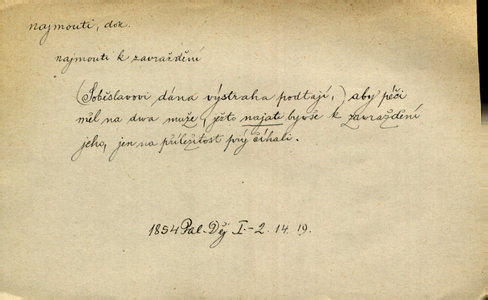 najmouti, dok.
najmouti k zavraždění
(Soběslavovi dána výstraha podtají,) aby péči
měl na dva muže, ježto najati byvše k zavraždění
jeho, jen na příležitost prý číhali.
1854 Pal. Děj I.-2. 14. 19.